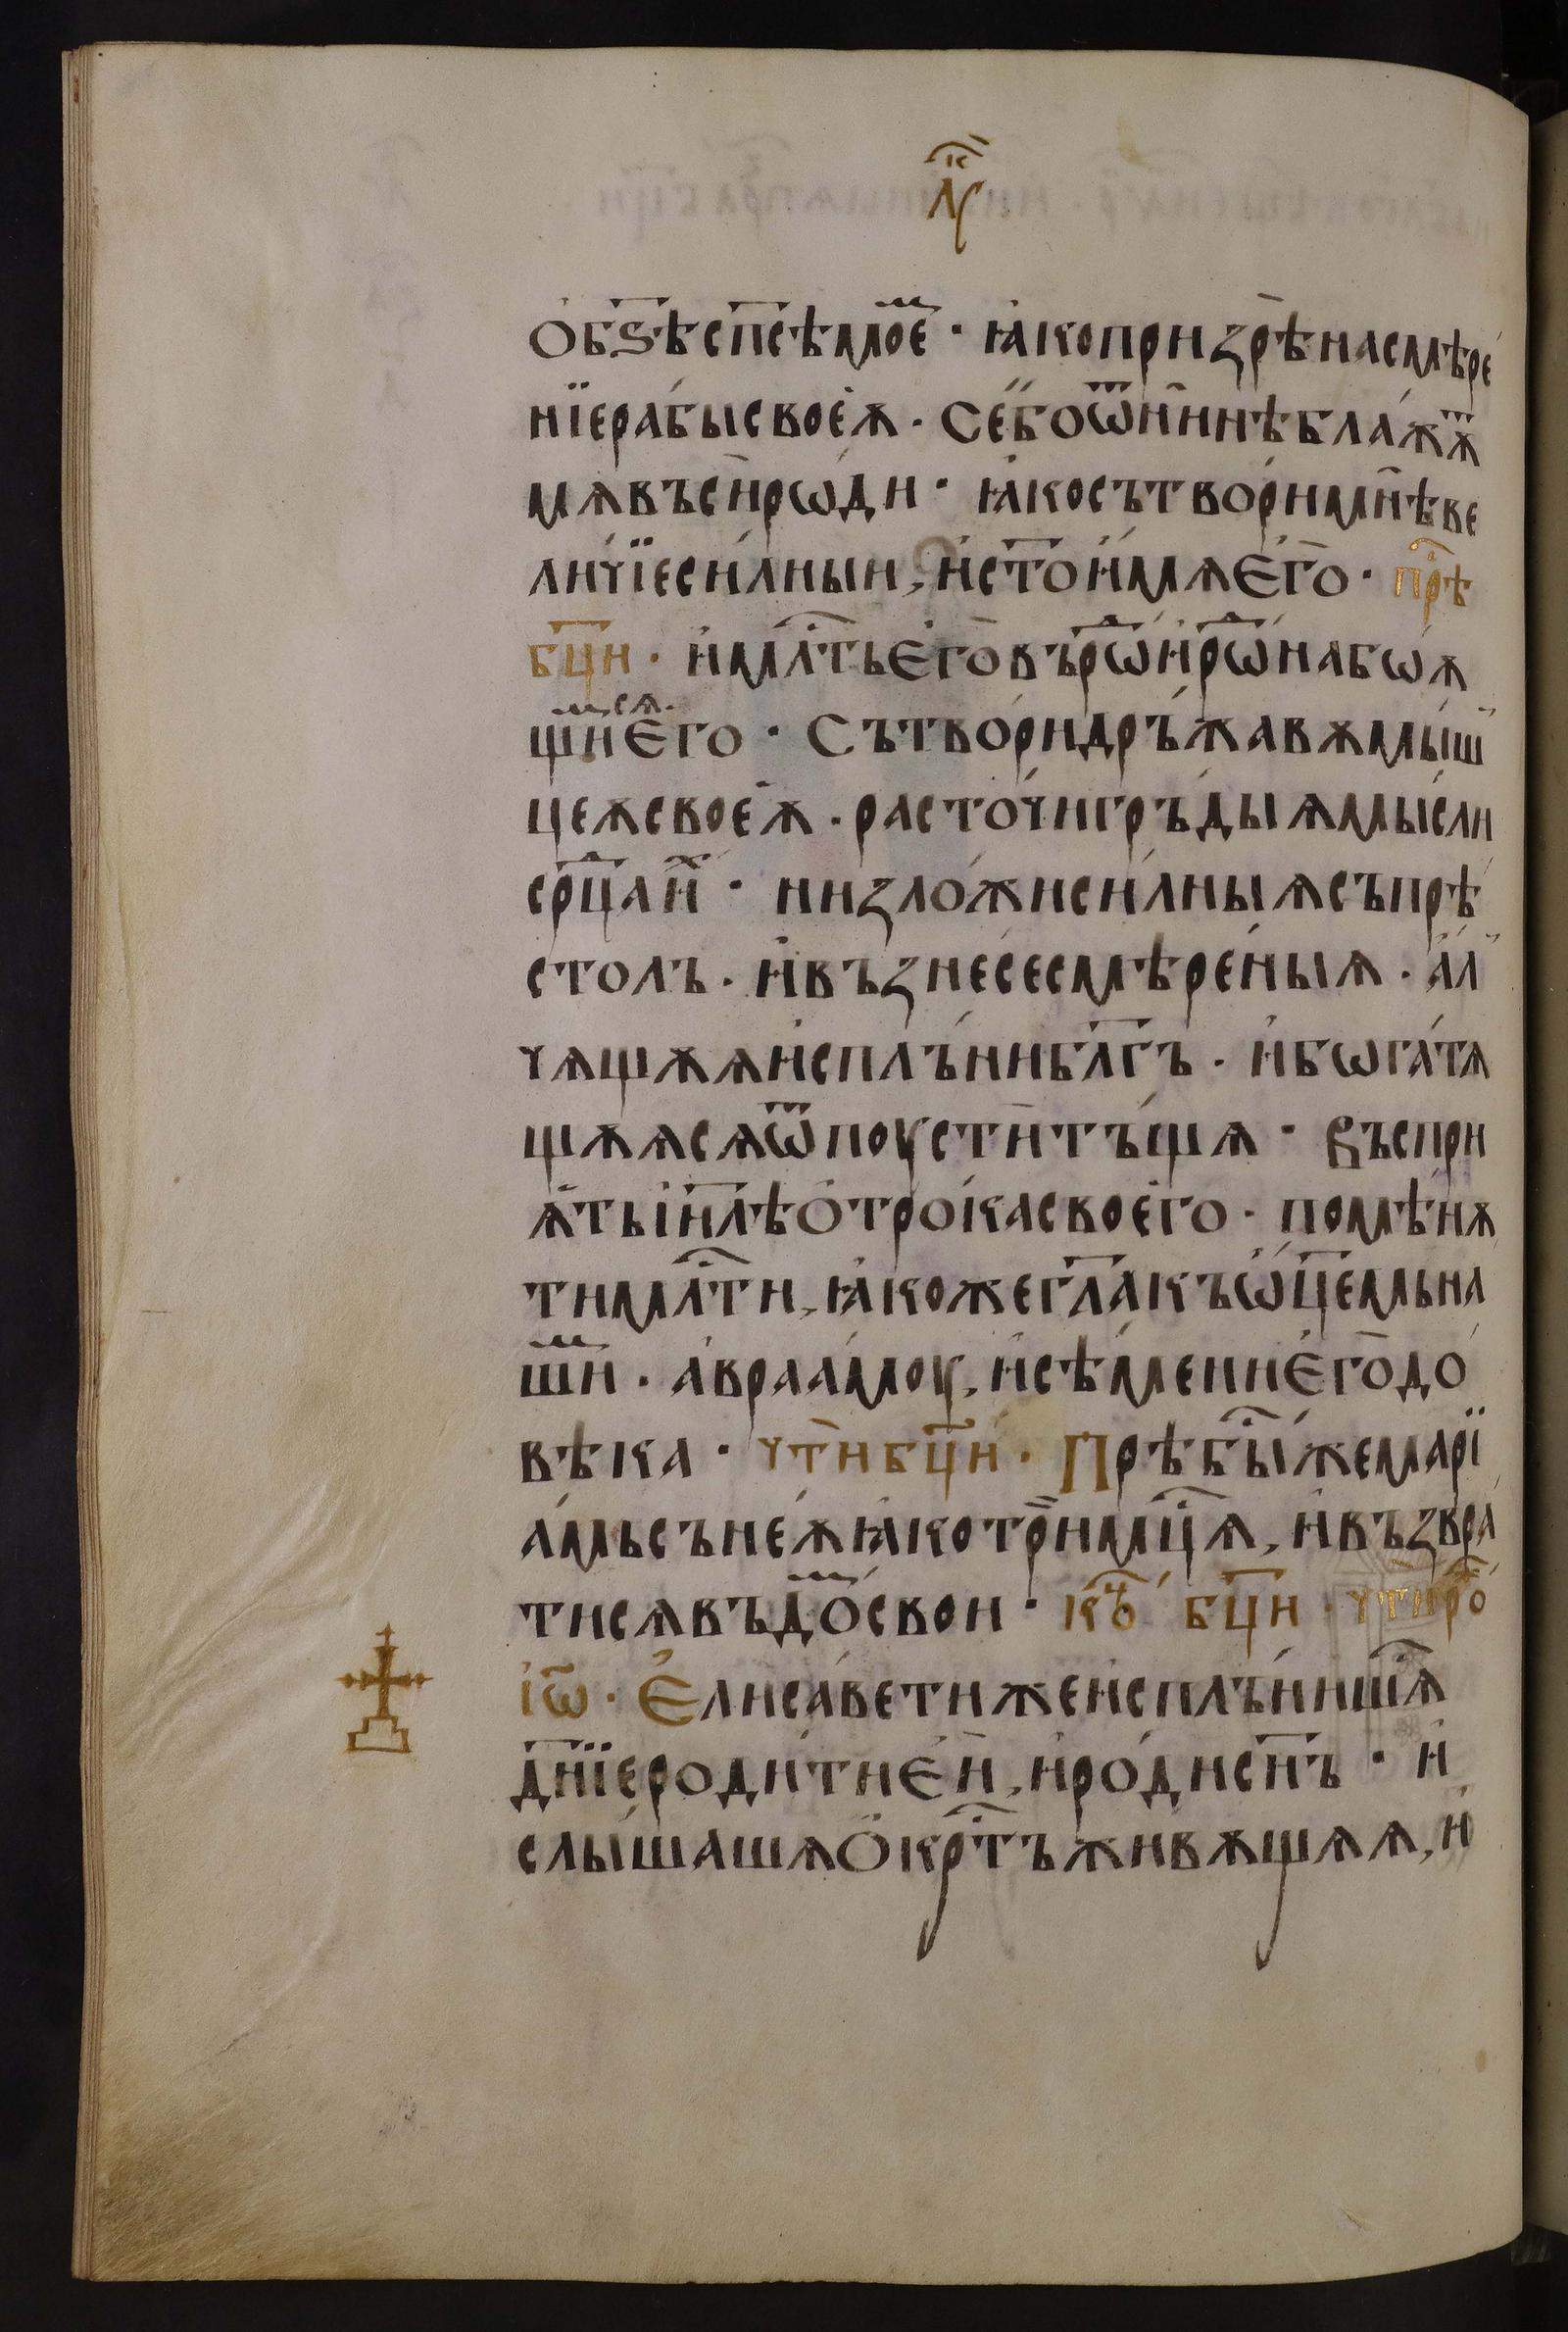 лꙋ҃к
обѕѣ сп҃сѣ моеⷨ · ꙗко призрѣ на смѣре
нїе рабы своеѧ · Се бо ѿ н҃нѣ блажѧⷮ
мѧ въси рѡди · ꙗко сътвори мн҃ѣ ве
личїе силныи, и ст҃о имѧ Его · прⷣѣ
бц҃и · и млⷭ҇ть Его въ рѡⷣ и рѡⷣ на боѧ
щиⷨсѧ Его · Сътвори дръжавѫ мыш
цеѫ своеѫ · расточи гръдыѧ мысли
срⷣца иⷯ · низложи силныѧ съ прѣ
столъ · и възнесе смѣреныѧ · ал
чѧщѫѧ исплъни бл҃гъ · и бѡгатѧ
щѫѧсѧ ѿпоусти тъщѧ · Въспри
ѧтъ і҃илѣ отрока своего · помѣнѫ
ти млⷭ҇ти, ꙗкоже гл҃а къ ѡц҃емь на
шиⷨ · аврааму, и сѣмени Его до
вѣка · чти бц҃и · Прѣбыⷭ҇ же марі
амь съ неѫ ꙗко три мцⷭ҇ѧ, и възвра
тисѧ въ доⷨ свои · коⷰ҇ бц҃и · чт҃и роⷤ
іѡ҃ · Елисавети же исплънишⷭ҇ѧ
дн҃їе родити Еи, и роди сн҃ъ · и
слышашѧ окрⷭ҇тъ живѫщѧѧ, и